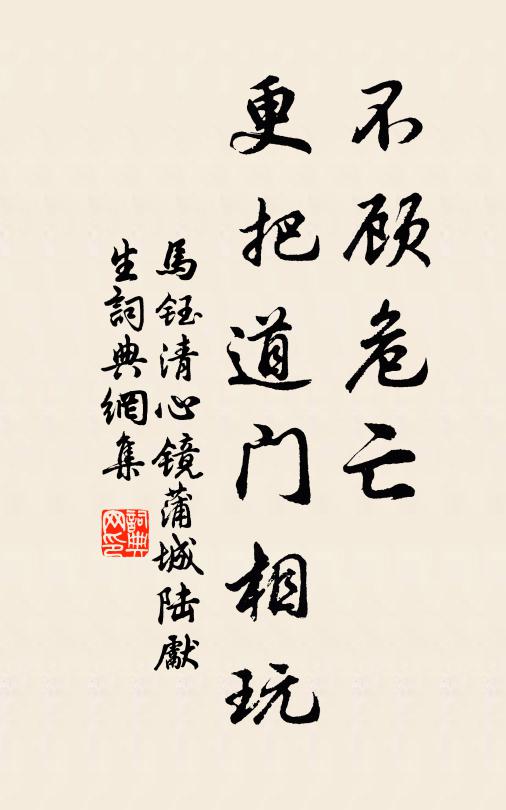 不顾危亡
更把道门相玩
馬钰清心镜蒲城陆獻
生詞典網集
詞典网印